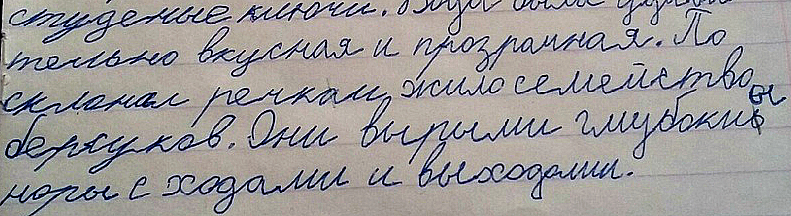 студеные ключи. Вода была удиви
тельно вкусная и прозрачная. По
склонам речкам жило семейство
Они вырыли глубокие
норы с ходами и выходами.